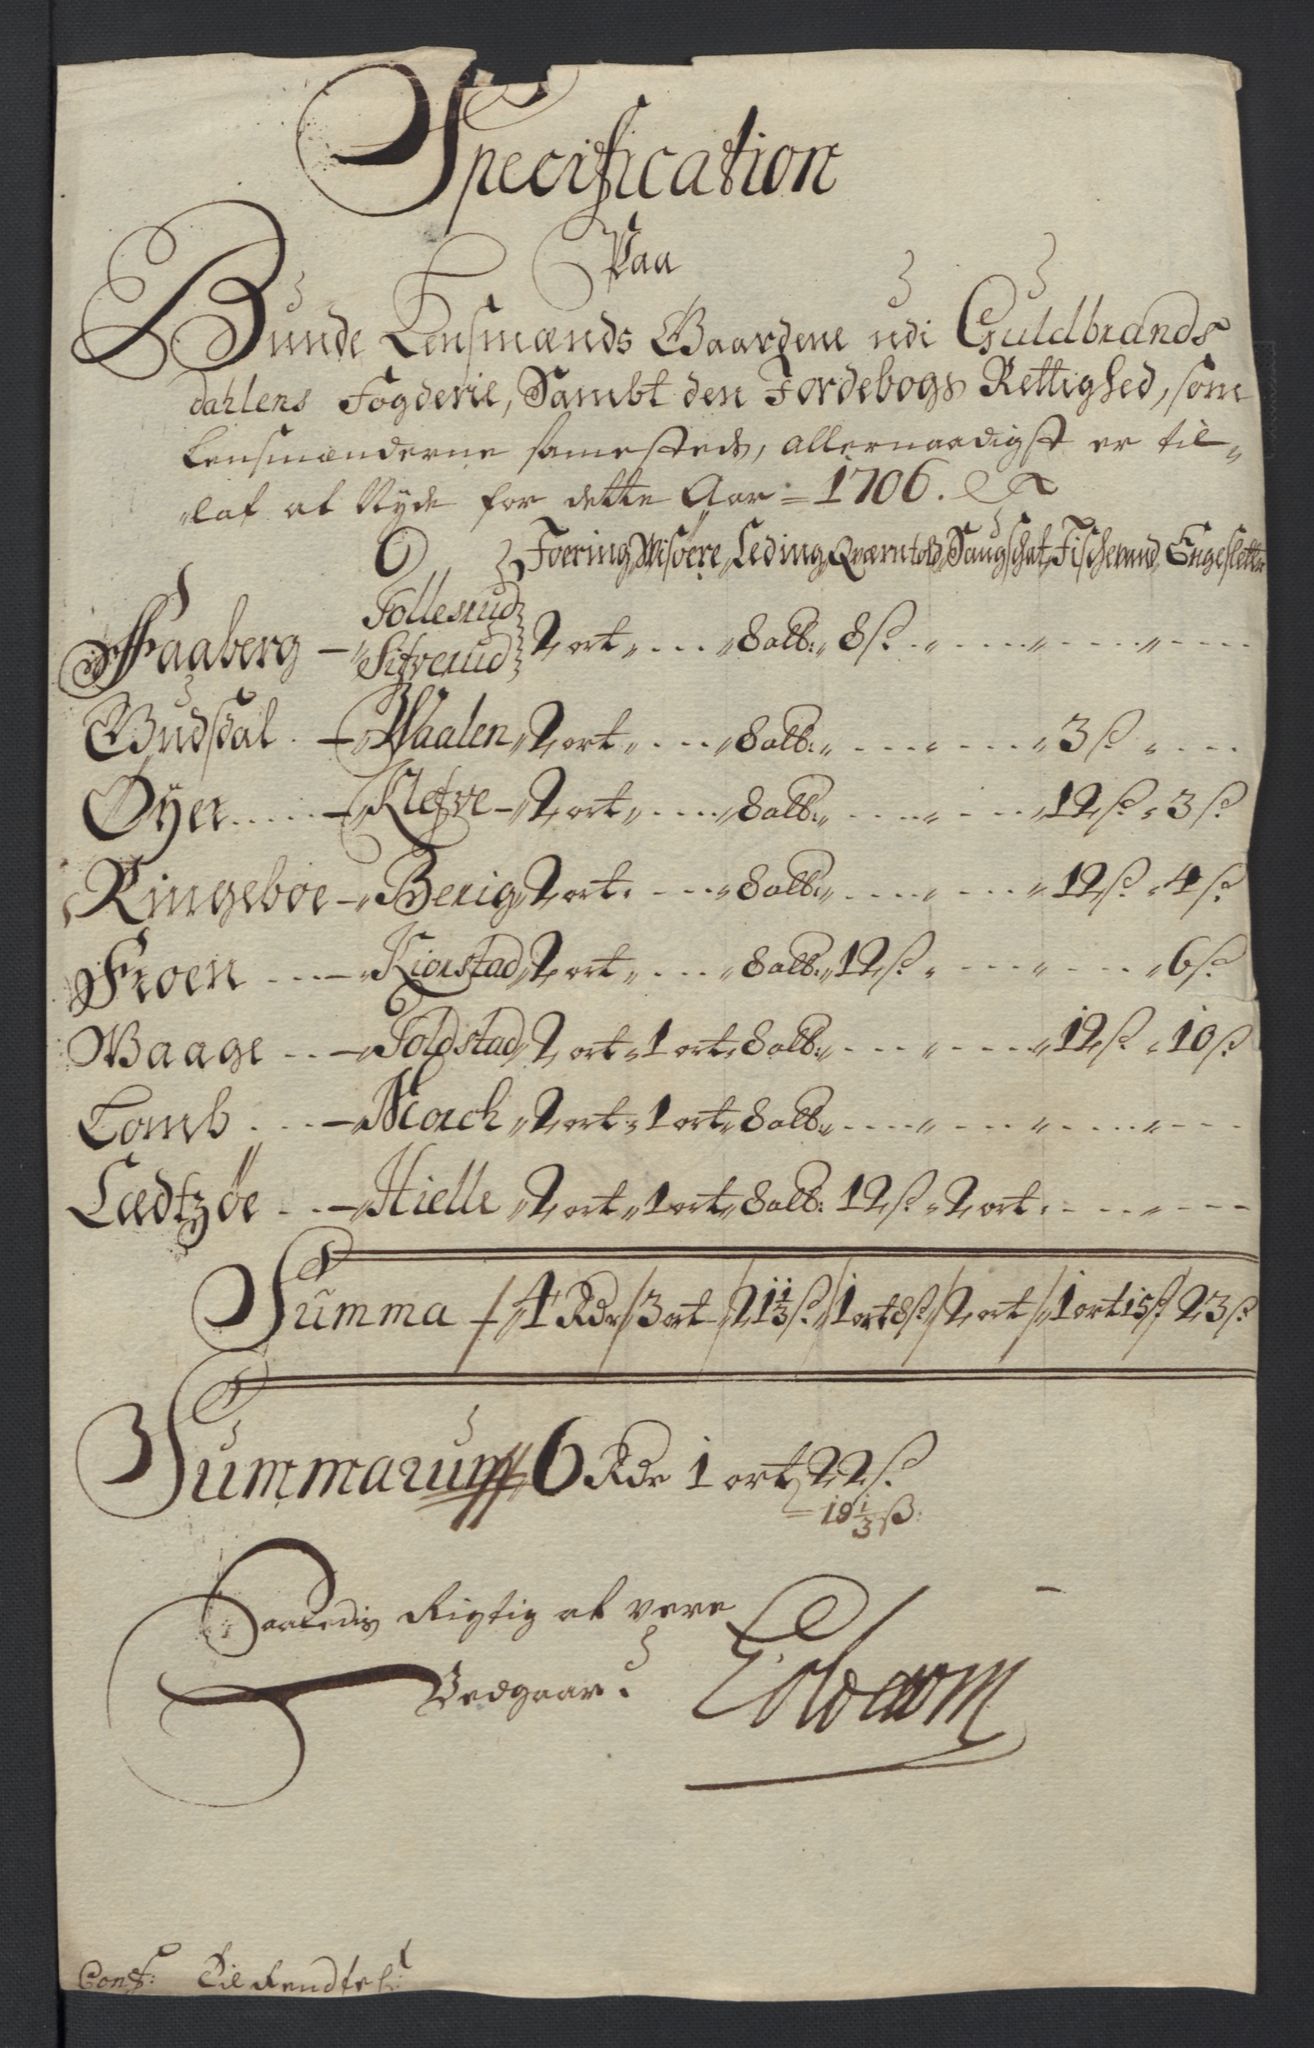 Specification
Paa
Bunde Lensmænds Gaardene udi Guldbrands
dahlens Fogderie, Sambt den Jordebogs Rettighed, som
Lensmænderne samesteds, allernaadigst er til-
lat at Nyde for dette Aar = 1706.
Foering, Wisøere, Leding, Qværntold, Saugschat, Fischevand, Engeslette
Faaberg - Follesrud Sifverud 2 ort - 8 alb: 8 ß
Gudsdal - Waalen 2 ort - 8 alb: - - 3 ß -
Øyer - Klefve - 2 ort - 8 alb: - - 12 ß 3 ß
Ringeboe - Berig 2 ort - 8 alb: - - 12 ß 4 ß
Froen - Kiorstad 2 ort - 8 alb: 12 ß - - 6 ß
Waage - Foldstad 2 ort 1 ort 8 alb: - - 12 ß 10 ß
Lomb - Morch 2 ort 1 ort 8 alb: - - - -
Lædtzøe - Hielle 2 ort 1 ort 8 alb: 12 ß 2 ort - -
Summa / 4 Rdr / 3 ort / 21 1/3 ß / 1 ort 8 ß / 2 ort / 1 ort 15 ß / 23 ß
Summarum 6 Rdr 1 ort 22 ß
= 19 1/3 ß:
Saaledis Rigtig at vere
Vedgaar.
Til Rendte